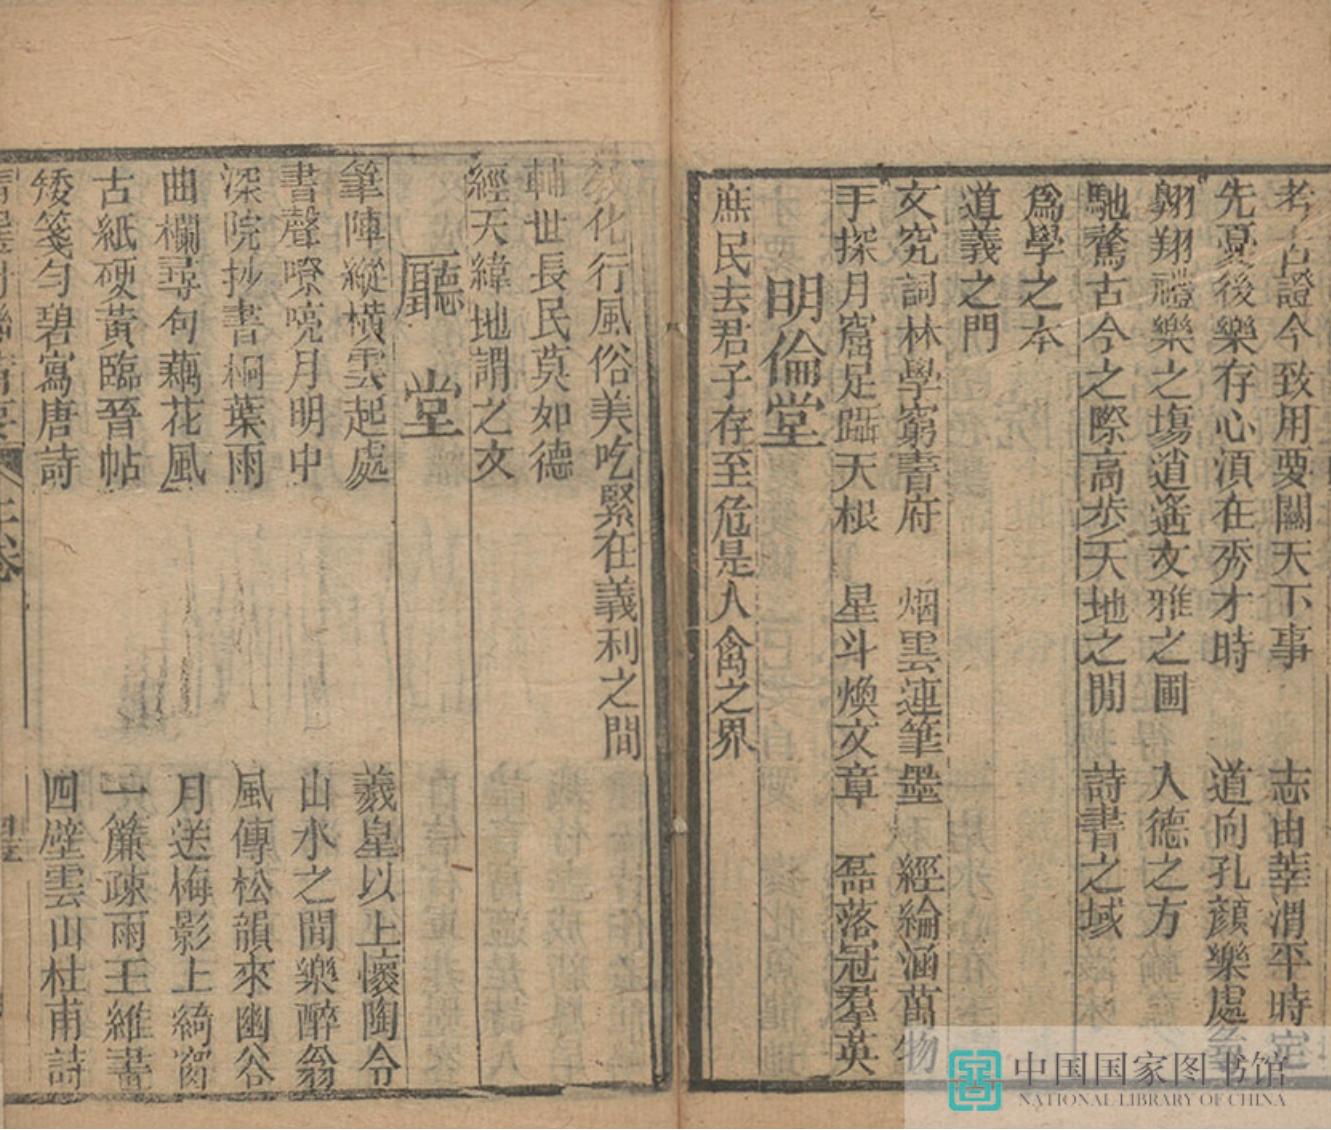 考古證今致用要關天下事 志由莘渭平時定
先憂後樂存心須在秀才時 道向孔顏樂處
翱翔禮樂之場逍遙文雅之圃 入德之方
馳騖古今之際高步天地之間 詩書之域
爲學之本
道義之門
文究詞林學窮書府 烟雲連筆墨 經綸涵萬物
手探月窟足躡天根 星斗煥文章 磊落冠羣英
明倫堂
庶民去君子存至危是人禽之界
教化行風俗美吃緊在義利之間
輔世長民莫如德
經天緯地謂之文
廳堂
筆陣縱橫雲起處 羲皇以上懷陶令
書聲嘹喨月明中 山水之間樂醉翁
深院抄書桐葉雨 風傳松韻來幽谷
曲欄尋句藕花風 月送梅影上綺窗
古紙硬黃臨晉帖 一簾疎雨王維畫
矮箋勻碧寫唐詩 四壁雲山杜甫詩
中国国家图书馆
NATIONAL LIBRARY OF CHINA